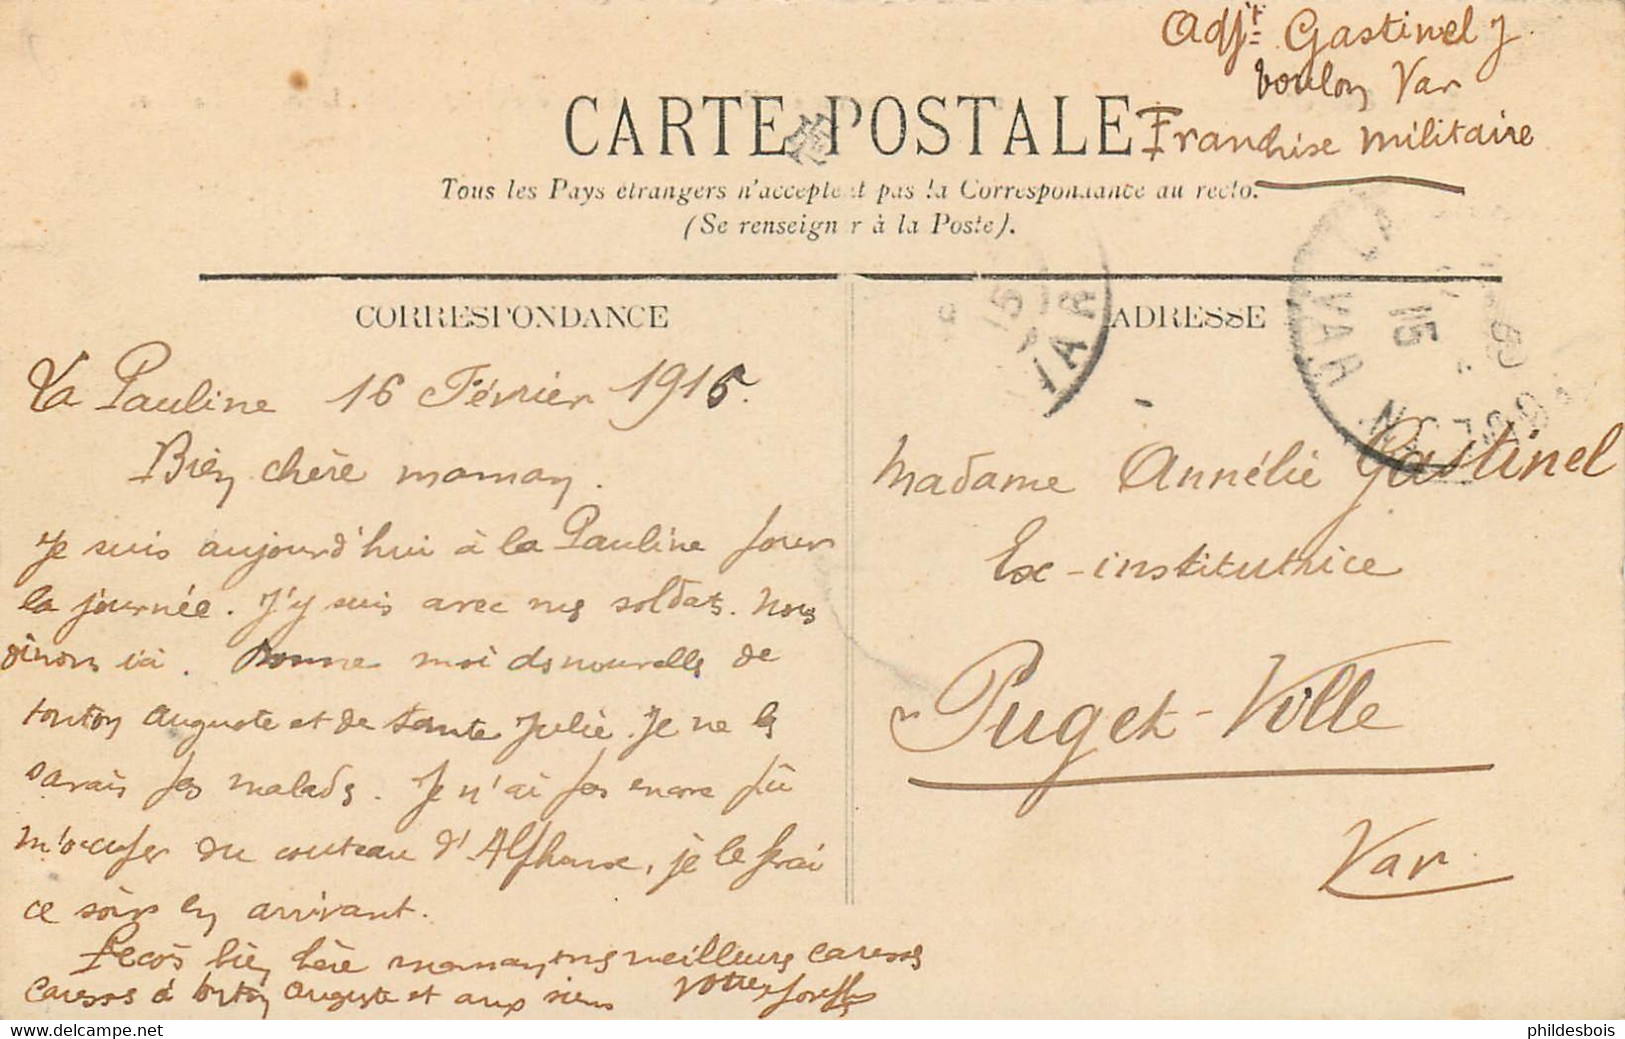 Adjt Gastinel J.
Toulon Var
Franchise militaire
CARTE POSTALE
Tous les Pays étrangers n'acceptent pas la Correspondance au recto.
(Se renseigner à la Poste).
CORRESPONDANCE
ADRESSE
VAR
15
VAR
15
La Pauline 16 Février 1915.
Bien chère maman.
Je suis aujourd'hui à la Pauline pour
la journée. J'y suis avec mes soldats. Nous
dînons ici. Donne moi des nouvelles de
tonton Auguste et de tante Julie. Je ne les
savais pas malades. Je n'ai pas encore pû
m'occuper du couteau d'Alphonse, je le ferai
ce soir en arrivant.
Reçois bien chère maman mes meilleures caresses
caresses à tonton Auguste et aux siens Votre Joseph
Madame Annélie Gastinel
Ex-institutrice
Puget-Ville
Var
phildesbois